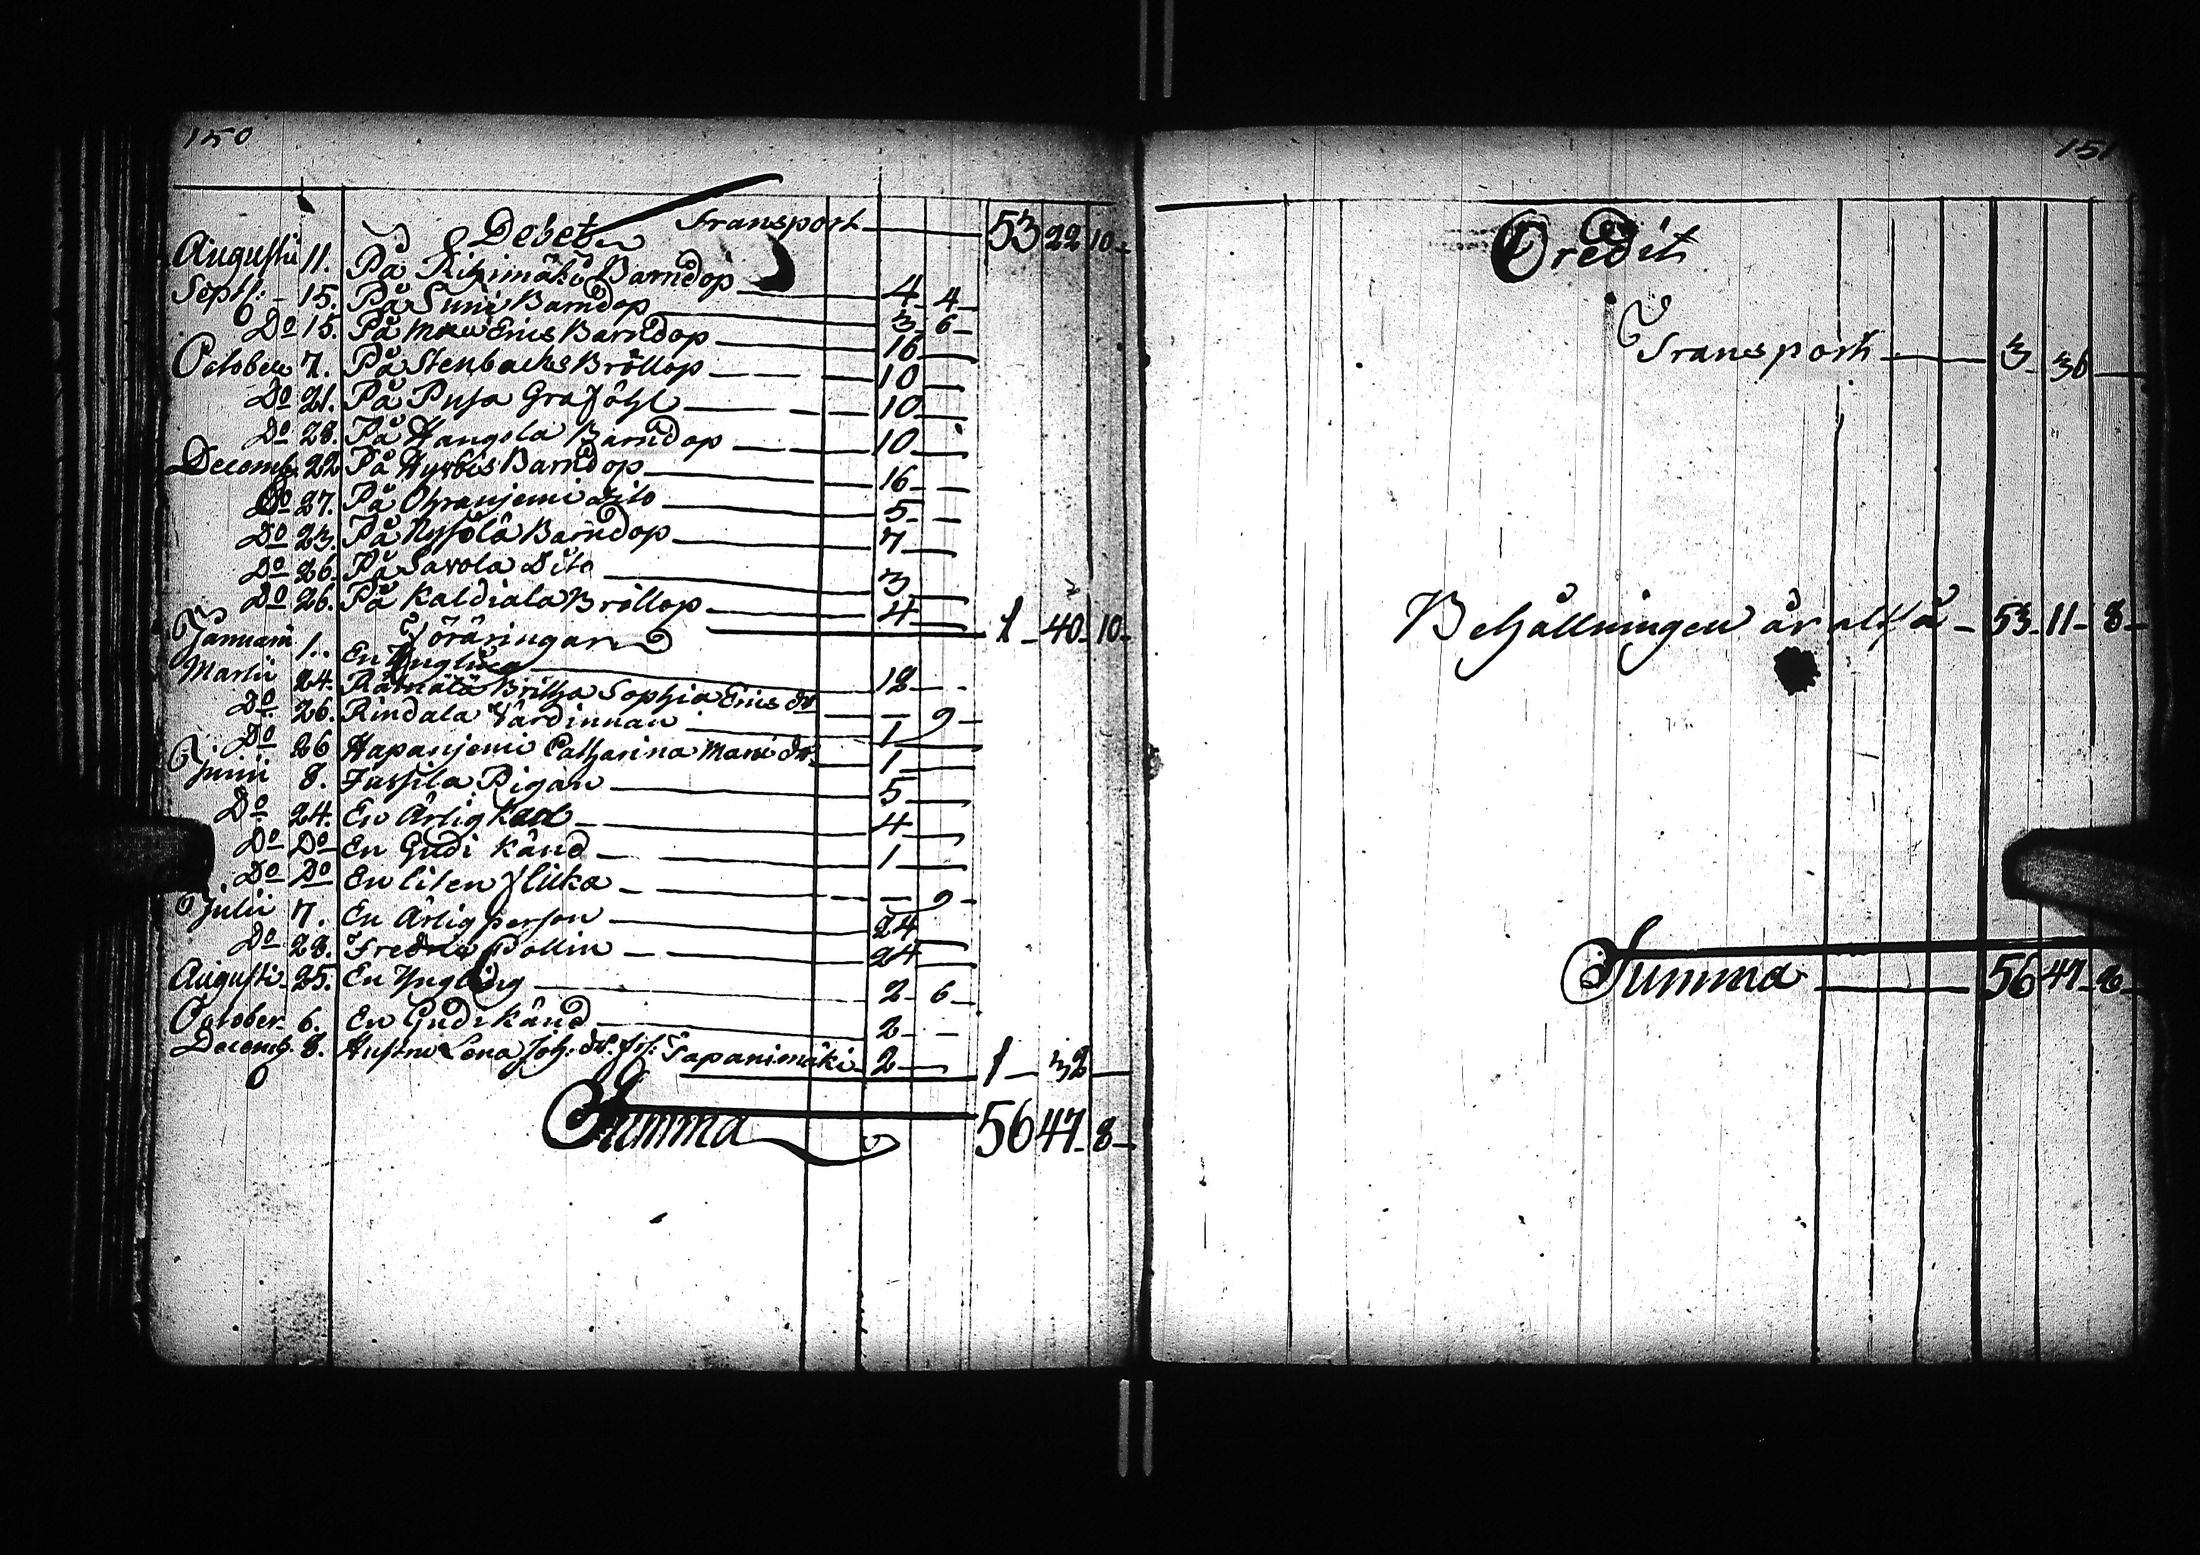 150
Debet Transport 53 22 10
Augustii 11. På Riihimäki Barndop 4 4
Sept: 15. På Suni Barndop 3 6
Do 15. På Erics Barndop 16
October 7. På Stenbacks Bröllop 10
Do 21. På Pusa Graföhl 10
Do 28. På Hangola Barndop 10
Decemb. 22 På Hyrbis Barndop 16
Do 27. På Ohranjemi Dito 5
Do 23. På Nysölä Barndop 7
Do 26. På Savola Dito 3
Do 26. På Kaldiala Bröllop 4 1 40 10
Föräringar
Januarii 1. En Yngling 12
Martii 24. Britha Sophia Erics dr 9
Do 26. Rindala Värdinnan 1
Do 26 Hapanjemi Catharina dr 1
Junii 8. Jussila Pigan 5
Do 24. En Ärlig 4
Do Do En Gudi känd 1
Do Do En liten flicka 9
Julii 7. En Ärlig person 24
Do 28. Pollin 24
Augusti 25. En Yngling 2 6
October 6. En Gudi känd 2
Decemb. 8. Hustru Lena Joh: dr. Tapanimäki 2 1 32
Summa 56 47 8
151
Credit
Transport 3 36
Behållningen är altså 53 11 8
Summa 56 47 8